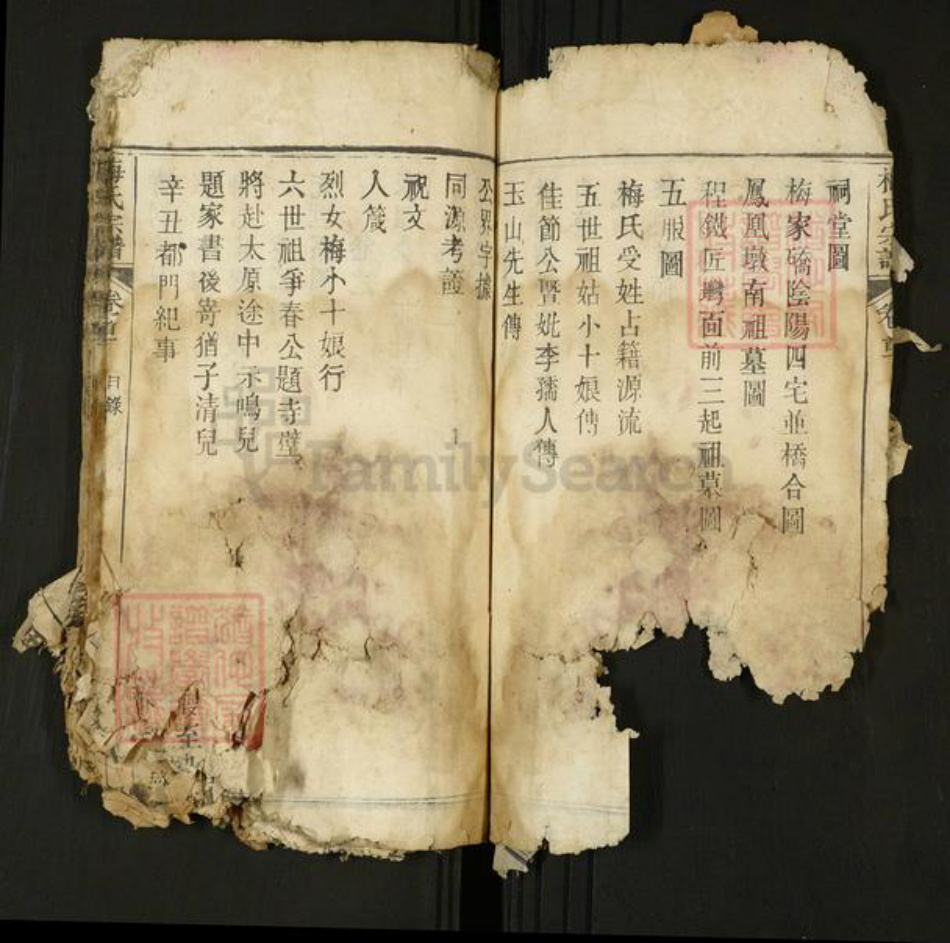 祠堂圖
梅家磡陰陽四宅並橋合圖
鳳凰墩南祖墓圖
程鐵匠灣面前三起祖墓圖
五服圖
梅氏受姓占籍源流
五世祖姑小十娘傳
佳節公暨妣李孺人傳
玉山先生傳
公界字據
同源考證
祝文
人箴
烈女梅小十娘行
六世祖爭春公題寺壁
將赴太原途中示鳴兒
題家書後寄猶子清兒
辛丑都門紀事
梅氏宗譜 卷首 目錄
FamilySearch